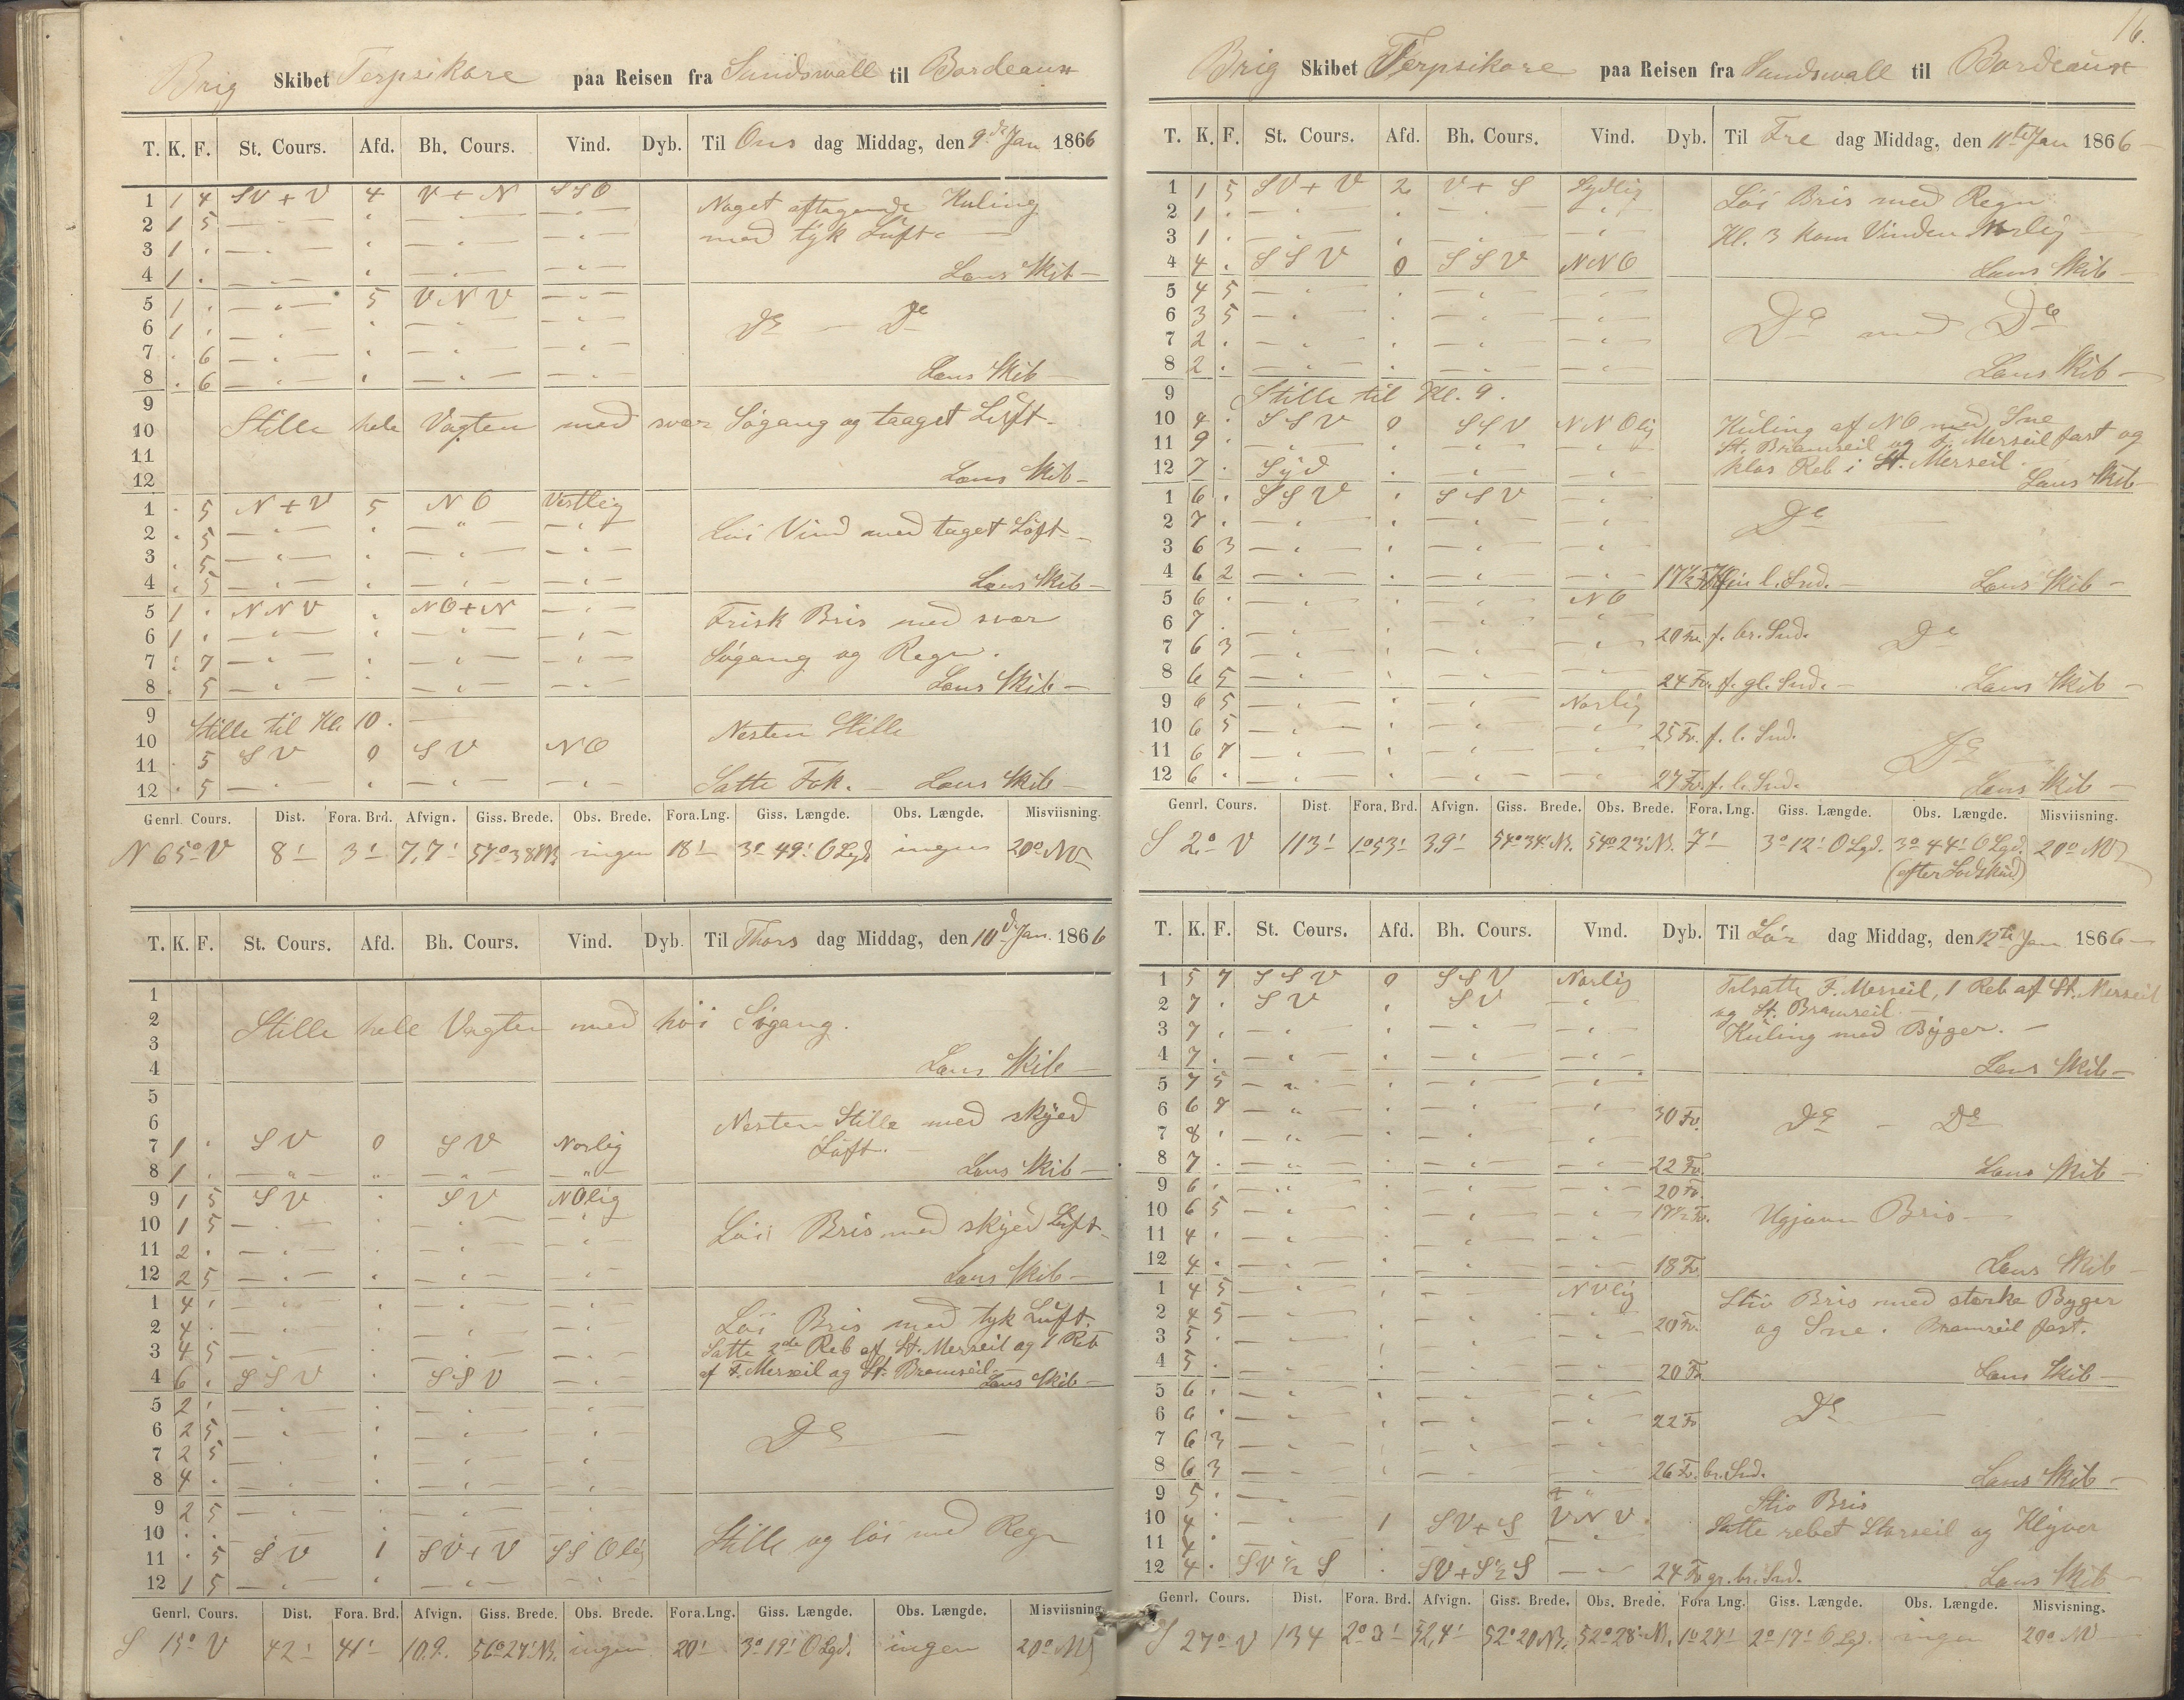 Brig Skibet Terpsikore paa Reisen fra Sundswall til Bordeaux
T. K. F. St. Cours. Afd. Bh. Cours. Vind. Dyb. Til Ons dag Middag, den 9de Jan 1866
1 1 4 SV+V 4 V+N SSO Noget aftagende Kuling
2 1 5 — " — " — " — — " — med tyk Luft
3 1 " — " — " — " — — " —
4 1 " — " — " — " — — " — Læns Skib —
5 1 " — " — 5 VNV — " —
6 1 " — " — " — " — — " — De — De
7 " 6 — " — " — " — — " —
8 " 6 — " — " — " — — " — Læns Skib —
9
10 Stille hele Vagten med svær Søgang og taaget Luft.
11
12 Læns Skib —
1 " 5 N+V 5 NO Vestlig
2 " 5 — " — " — " — — " — Løi Vind med taget Luft —
3 " 5 — " — " — " — — " —
4 " 5 — " — " — " — — " — Læns Skib —
5 1 " NNV " NO+N — " — Frisk Bris med svær
6 1 " — " — " — " — — " —
7 " 7 — " — " — " — — " — Søgang og Regn.
8 " 5 — " — " — " — — " — Læns Skib —
9 Stille til Kl. 10. — Nesten Stille
10
11 " 5 SV 0 SV NO
12 " 5 — " — " — " — — " — Satte Fok. — Læns Skib —
Genrl. Cours. Dist. Fora. Brd. Afvign. Giss. Brede. Obs. Brede. Fora. Lng. Giss. Længde. Obs. Længde. Misviisning.
N 65° V 8' 3' 7,7' 57°38' N. ingen 18' 3° 49' O Lgd. ingen 20° NV
T. K. F. St. Cours. Afd. Bh. Cours. Vind. Dyb. Til Thors dag Middag, den 10de Jan. 1866
1
2 Stille hele Vagten med høi Søgang.
3
4 Læns Skib —
5
6 Nesten Stille med skyed
7 1 " SV 0 SV Norlig Luft. —
8 1 " — " — " — " — — " — Læns Skib —
9 1 5 SV " SV NOlig
10 1 5 — " — " — " — — " — Løi Bris med skyed Luft —
11 2 " — " — " — " — — " —
12 2 5 — " — " — " — — " — Læns Skib —
1 4 " — " — " — " — — " — Løi Bris med tyk Luft.
2 4 " — " — " — " — — " —
3 4 5 — " — " — " — — " — Satte 2de Reb af St. Merseil og 1 Reb
4 6 " SSV " SSV — " — af F. Merseil og St. Bramseil — Læns Skib —
5 2 " — " — " — " — — " —
6 2 5 — " — " — " — — " — De —
7 2 5 — " — " — " — — " —
8 4 " — " — " — " — — " —
9 2 5 — " — " — " — — " —
10 " " Stille og løi med Regn
11 " 5 SV 1 SV+V SSOlig
12 1 5 — " — " — " — — " —
Genrl. Cours. Dist. Fora. Brd. Afvign. Giss. Brede. Obs. Brede. Fora. Lng. Giss. Længde. Obs. Længde. Misviisning.
S 15° V 42' 41' 10.9. 56°27' N. ingen 20' 3° 19' O Lgd. ingen 20° NV
16.
Brig Skibet Terpsikore paa Reisen fra Sundswall til Bordeaux
T. K. F. St. Cours. Afd. Bh. Cours. Vind. Dyb. Til Fre dag Middag, den 11te Jan 1866 —
1 1 5 SV+V 2 V+S Sydlig Løi Bris med Regn.
2 1 " — " — " — " — — " —
3 1 " — " — " — " — — " — Kl. 3 kom Vinden Norlig —
4 4 " SSV 0 SSV NNO Læns Skib —
5 4 5 — " — " — " — — " —
6 3 5 — " — " — " — — " — De med De
7 2 " — " — " — " — — " —
8 2 " — " — " — " — — " — Læns Skib —
9 Stille til Kl. 9.
10 4 " SSV 0 SSV NNOlig Kuling af NO med Sne
11 9 " — " — " — " — — " — St. Bramseil og F. Merseil fast og
12 7 " Syd " — " — " klos Reb i St. Merseil. Læns Skib —
1 6 " SSV " SSV — " —
2 7 " — " — " — " — " De —
3 6 3 — " — " — " — "
4 6 2 — " — " — " — — " — 17½ Fv. fin l. Snd. — Læns Skib —
5 6 " — " — " — " NO
6 7 " — " — " — " — " 20 Fv. f. br. Snd. De
7 6 3 — " — " — " — — " —
8 6 5 — " — " — " — — " — 24 Fv. f. gl. Snd. — Læns Skib —
9 6 5 — " — " — " — Norlig
10 6 5 — " — " — " — " 25 Fv. f. l. Snd.
11 6 7 — " — " — " — — " — De
12 6 " — " — " — " — — " — 27 Fv. f. l. Snd. Læns Skib —
Genrl. Cours. Dist. Fora. Brd. Afvign. Giss. Brede. Obs. Brede. Fora. Lng. Giss. Længde. Obs. Længde. Misviisning.
S 2° V 113' 1°53' 3.9' 54°34' N. 54°23' N. 7' 3° 12' O Lgd. 3° 44' O Lgd. 20° NV
(efter Lodskud)
T. K. F. St. Cours. Afd. Bh. Cours. Vind. Dyb. Til Lør dag Middag, den 12te Jan 1866 —
1 5 7 SSV 0 SSV Norlig Tilsatte F. Merseil, 1 Reb af St. Merseil
2 7 " SV " SV — " — og St. Bramseil. —
3 7 " — " — " — " — — " — Kuling med Byger. —
4 7 " — " — " — " — — " — Læns Skib —
5 7 5 — " — " — " — — " —
6 6 7 — " — " — " — " 30 Fv. De — De
7 8 " — " — " — " — "
8 7 " — " — " — " — — " — 22 Fv. Læns Skib —
9 6 " — " — " — " — — " — 20 Fv.
10 6 5 — " — " — " — — " — 17½ Fv. Ugjævn Bris —
11 4 " — " — " — " — "
12 4 " — " — " — " — — " — 18 Fv. Læns Skib —
1 4 5 — " — " — — NVlig Stiv Bris med stærke Byger
2 4 5 — " — " — " — " 20 Fv. og Sne. Bramseil fast.
3 5 " — " — " — " — "
4 5 " — " — " — " — — " — 20 Fv. Læns Skib —
5 6 " — " — " — " — — " —
6 6 " — " — " — " — — " — 22 Fv. De —
7 6 3 — " — " — " — "
8 6 3 — " — " — " — " 26 Fv. br. Snd. Læns Skib —
9 5 " — " — — " Stiv Bris
10 4 " — " — 1 SV+S VNV Satte rebet Storseil og Klyver
11 4 " — " — " — " — "
12 4 " SV½S " SV+S½S — " — 24 Fv. gr. br. Snd. Læns Skib —
Genrl. Cours. Dist. Fora. Brd. Afvign. Giss. Brede. Obs. Brede. Fora Lng. Giss. Længde. Obs. Længde. Misvisning.
S 27° V 134 2° 3' 52,4' 52°20 N. 52°28' N. 1° 27' 2° 17' O Lgd. ingen 20° NV